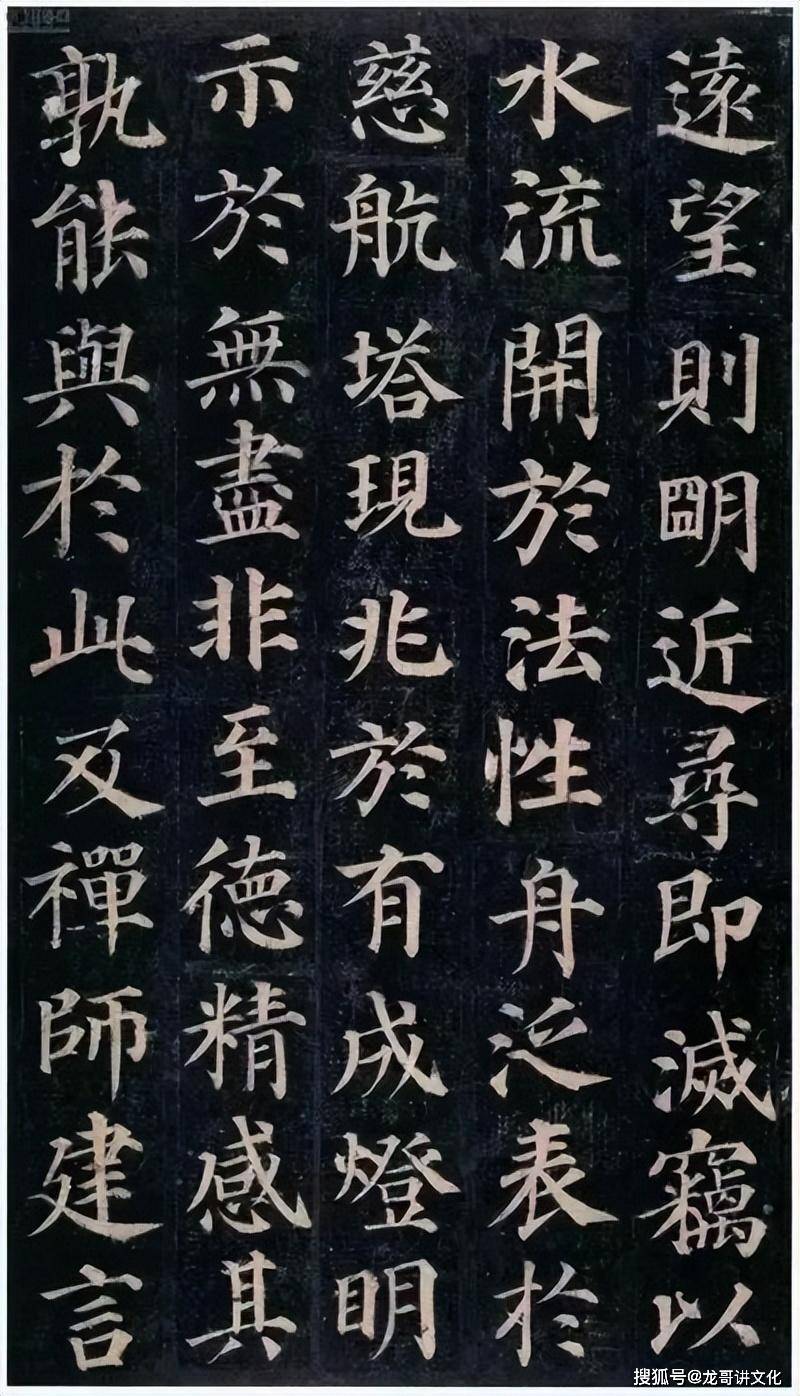 遠望則朙近尋即滅竊以
水流開於法性舟泛表於
慈航塔現兆於有成燈明
示於無盡非至德精感其
孰能與於此及禪師建言
搜狐号@龙哥讲文化